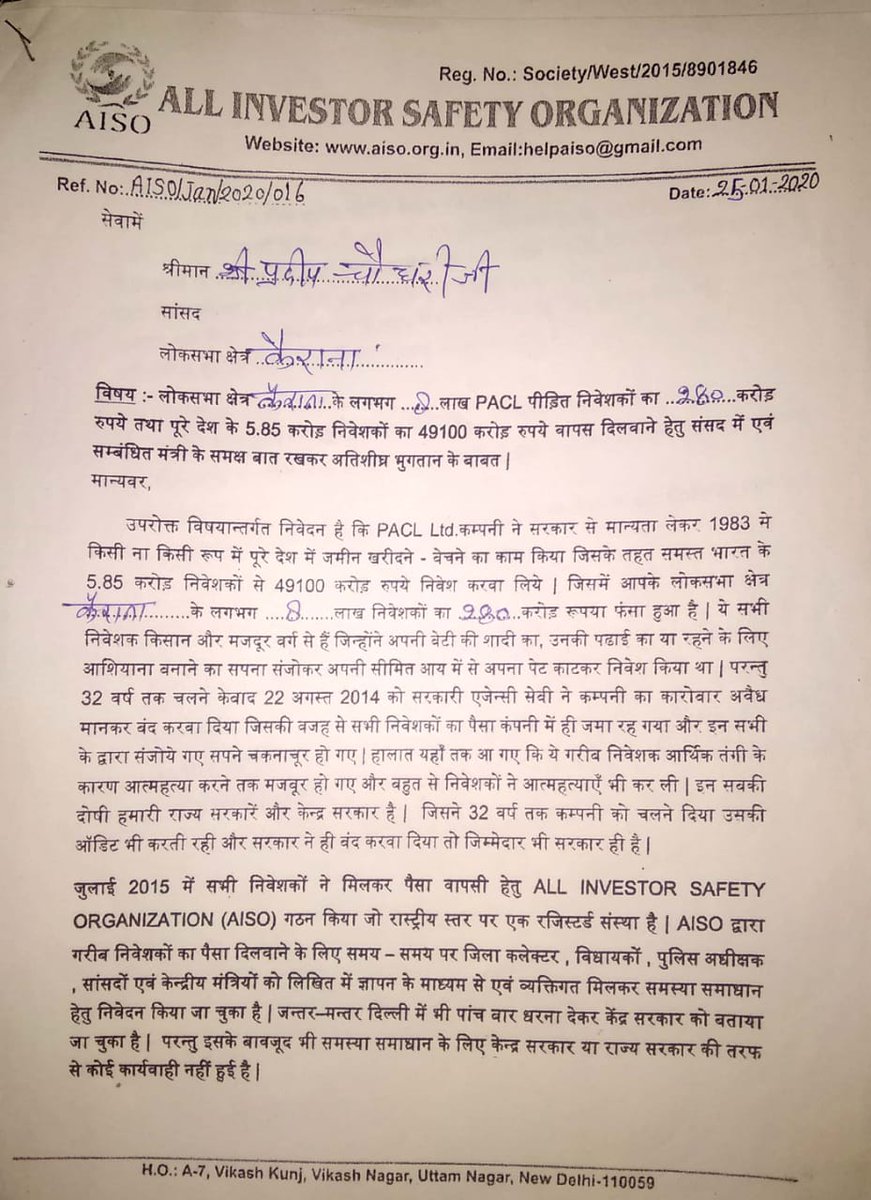 Reg. No.: Society/West/2015/8901846
AISO
ALL INVESTOR SAFETY ORGANIZATION
Website: www.aiso.org.in, Email:helpaiso@gmail.com
Ref. No:.AISO/Jan/2020/016
Date:.25.01-2020
सेवामें
श्रीमान ..श्री प्रदीप चौधरी जी
सांसद
लोकसभा क्षेत्र ..कैराना..............
विषय :- लोकसभा क्षेत्र कैराना के लगभग ..8..लाख PACL पीड़ित निवेशकों का ..280...करोड़
रुपये तथा पूरे देश के 5.85 करोड़ निवेशकों का 49100 करोड़ रुपये वापस दिलवाने हेतु संसद में एवं
सम्बंधित मंत्री के समक्ष बात रखकर अतिशीघ्र भुगतान के बाबत |
मान्यवर,
उपरोक्त विषयान्तर्गत निवेदन है कि PACL Ltd.कम्पनी ने सरकार से मान्यता लेकर 1983 मे
किसी ना किसी रूप में पूरे देश में जमीन खरीदने - वेचने का काम किया जिसके तहत समस्त भारत के
5.85 करोड़ निवेशकों से 49100 करोड़ रुपये निवेश करवा लिये | जिसमें आपके लोकसभा क्षेत्र
कैराना..........के लगभग ....8.......लाख निवेशकों का 280...करोड़ रूपया फंसा हुआ है | ये सभी
निवेशक किसान और मजदूर वर्ग से हैं जिन्होंने अपनी बेटी की शादी का, उनकी पढाई का या रहने के लिए
आशियाना बनाने का सपना संजोकर अपनी सीमित आय में से अपना पेट काटकर निवेश किया था | परन्तु
32 वर्ष तक चलने केवाद 22 अगस्त 2014 को सरकारी एजेन्सी सेवी ने कम्पनी का कारोवार अवैध
मानकर वंद करवा दिया जिसकी वजह से सभी निवेशकों का पैसा कंपनी में ही जमा रह गया और इन सभी
के द्वारा संजोये गए सपने चकनाचूर हो गए | हालात यहाँ तक आ गए कि ये गरीब निवेशक आर्थिक तंगी के
कारण आत्महत्या करने तक मजवूर हो गए और वहुत से निवेशकों ने आत्महत्याएँ भी कर ली | इन सवकी
दोषी हमारी राज्य सरकारें और केन्द्र सरकार है | जिसने 32 वर्ष तक कम्पनी को चलने दिया उसकी
ऑडिट भी करती रही और सरकार ने ही वंद करवा दिया तो जिम्मेदार भी सरकार ही है |
जुलाई 2015 में सभी निवेशकों ने मिलकर पैसा वापसी हेतु ALL INVESTOR SAFETY
ORGANIZATION (AISO) गठन किया जो रास्ट्रीय स्तर पर एक रजिस्टर्ड संस्था है | AISO द्वारा
गरीब निवेशकों का पैसा दिलवाने के लिए समय – समय पर जिला कलेक्टर , विधायकों , पुलिस अधीक्षक
, सांसदों एवं केन्द्रीय मंत्रियों को लिखित में ज्ञापन के माध्यम से एवं व्यक्तिगत मिलकर समस्या समाधान
हेतु निवेदन किया जा चुका है | जन्तर–मन्तर दिल्ली में भी पांच बार धरना देकर केंद्र सरकार को बताया
जा चुका है | परन्तु इसके बावजूद भी समस्या समाधान के लिए केन्द्र सरकार या राज्य सरकार की तरफ
से कोई कार्यवाही नहीं हुई है |
H.O.: A-7, Vikash Kunj, Vikash Nagar, Uttam Nagar, New Delhi-110059